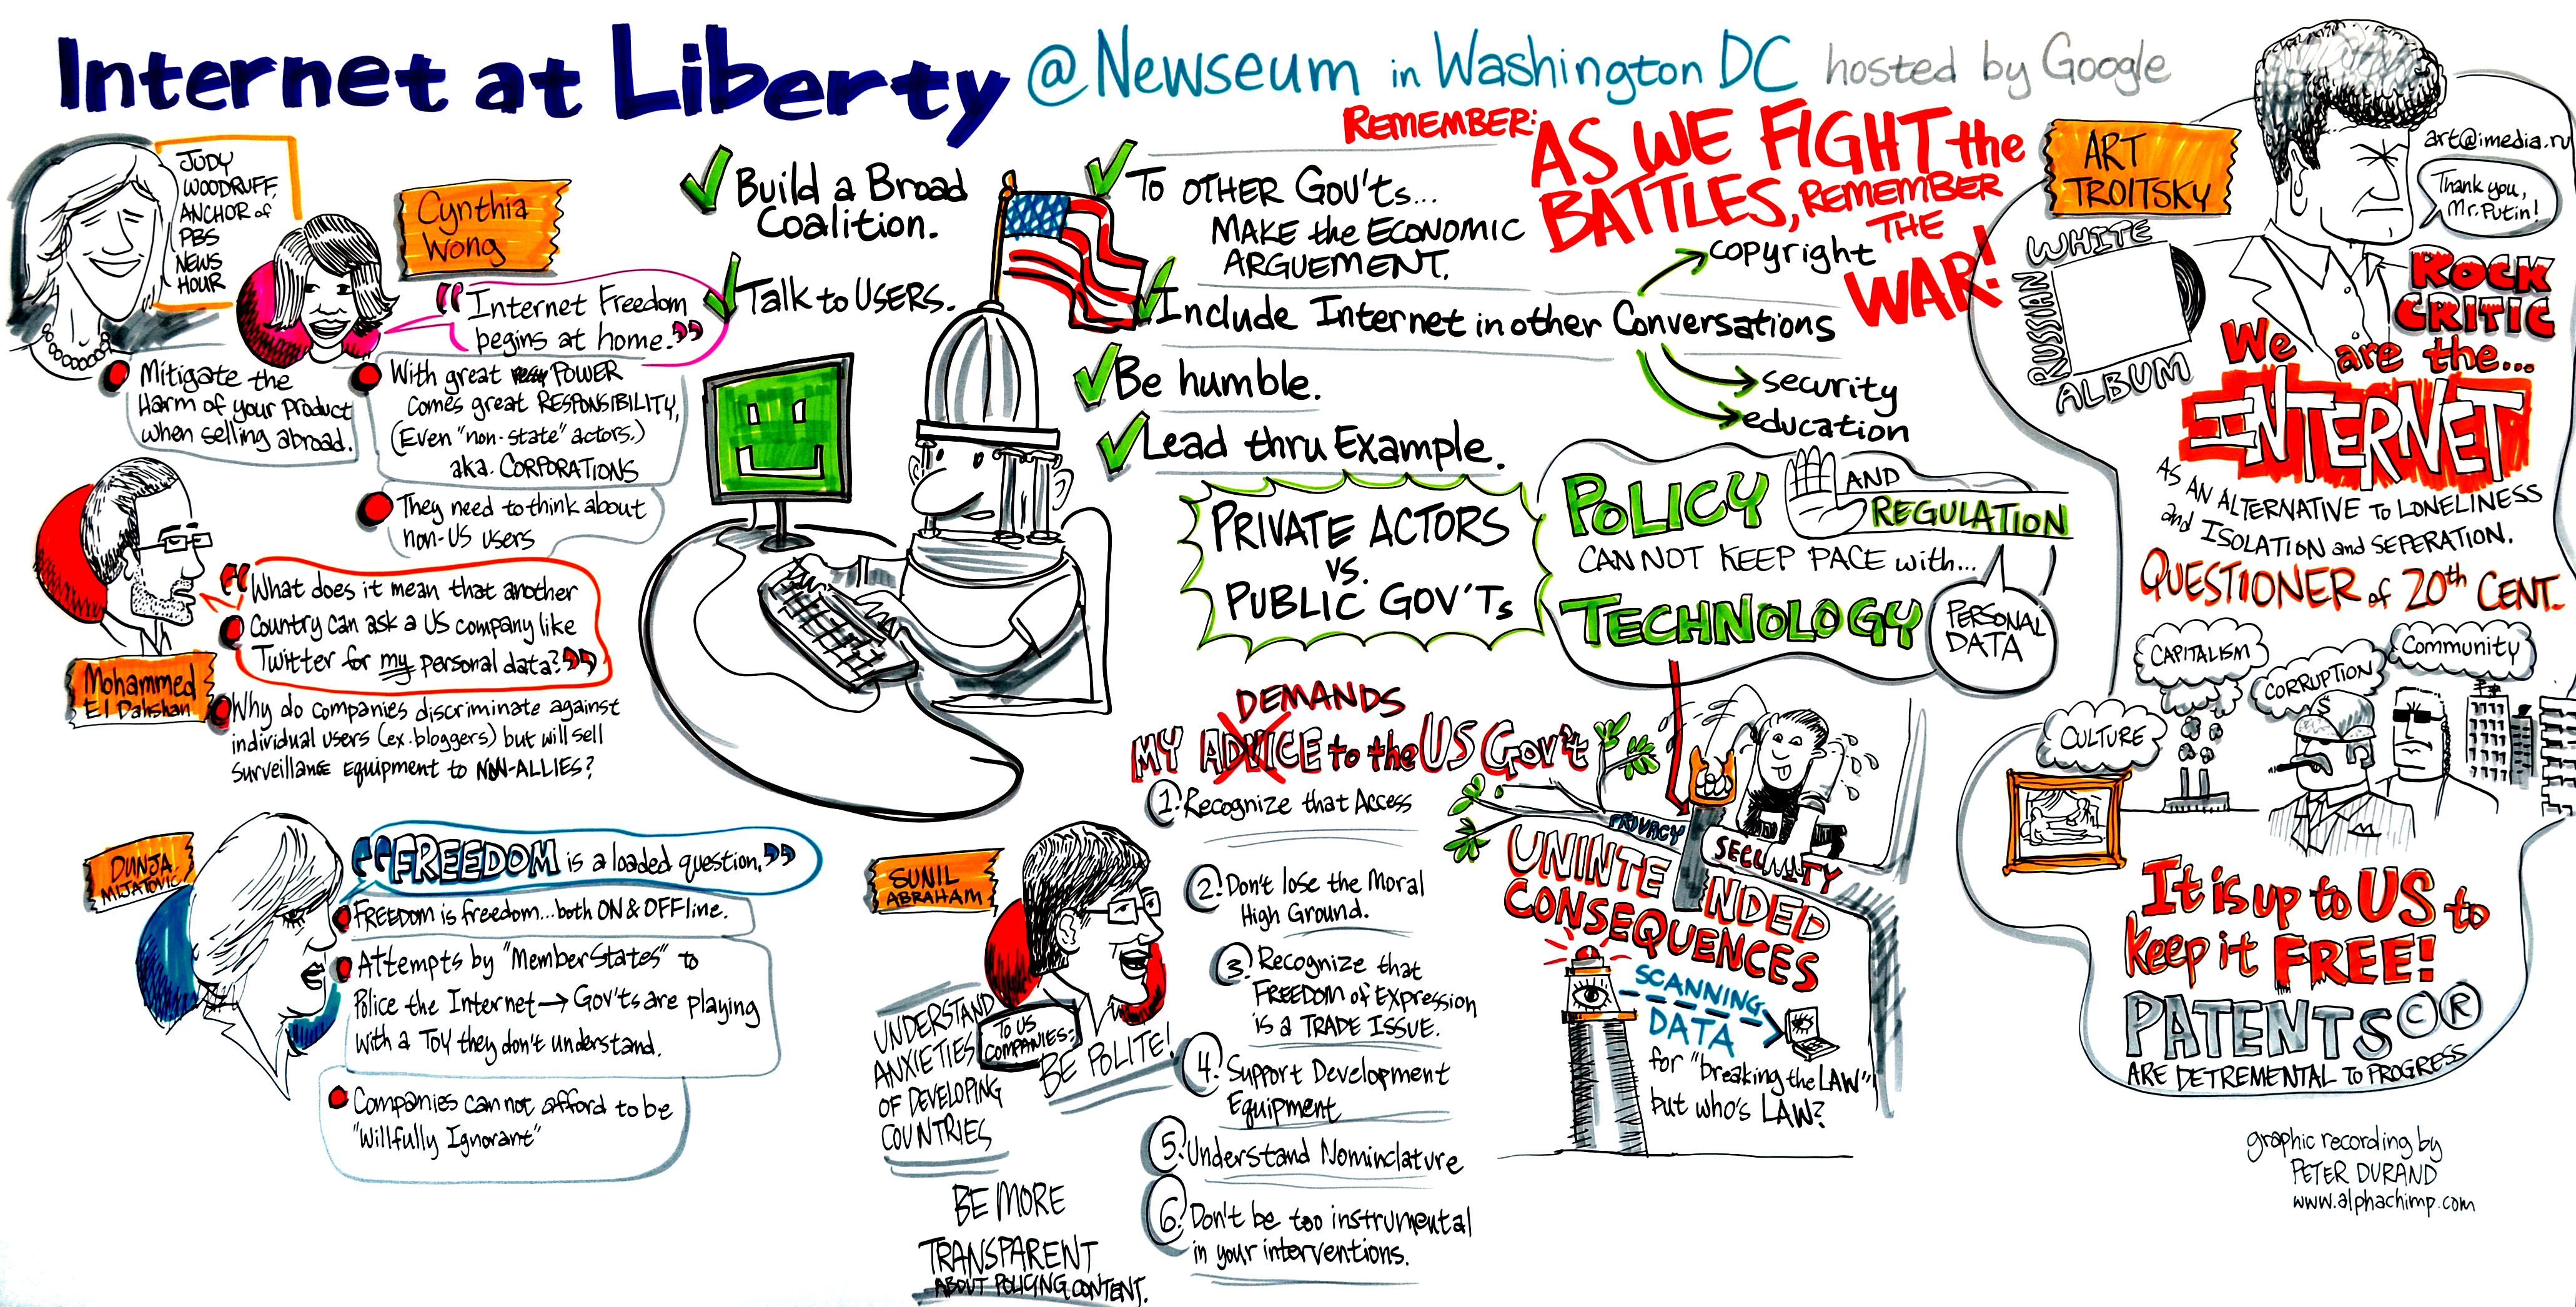 Internet at Liberty @ Newseum in Washington DC hosted by Google
JUDY
WOODRUFF,
ANCHOR of
PBS
NEWS
HOUR
Cynthia
Wong
"Internet Freedom
begins at home."
Mitigate the
Harm of your Product
when selling abroad.
With great POWER
comes great RESPONSIBILITY,
(Even "non-state" actors.)
aka. CORPORATIONS
They need to think about
non-US users
Mohammed
El Dahshan
"What does it mean that another
Country can ask a US company like
Twitter for my personal data?"
Why do companies discriminate against
individual users (ex. bloggers) but will sell
Surveillance equipment to NON-ALLIES?
DUNJA
MIJATOVIC
"FREEDOM is a loaded question."
FREEDOM is freedom...both ON & OFFline.
Attempts by "Member States" to
Police the Internet → Gov'ts are playing
with a Toy they don't understand.
Companies can not afford to be
"Willfully Ignorant"
Build a Broad
Coalition.
Talk to USERS.
REMEMBER:
AS WE FIGHT the
BATTLES, REMEMBER
THE
WAR!
To OTHER GOV'Ts...
MAKE the ECONOMIC
ARGUEMENT.
Include Internet in other Conversations
copyright
security
education
Be humble.
Lead thru Example.
PRIVATE ACTORS
vs.
PUBLIC GOV'Ts
POLICY AND
REGULATION
CAN NOT KEEP PACE with...
TECHNOLOGY
PERSONAL
DATA
DEMANDS
MY ADVICE to the US Gov't
1. Recognize that Access
2. Don't lose the Moral
High Ground.
3. Recognize that
FREEDOM of Expression
is a TRADE ISSUE.
4. Support Development
Equipment
5. Understand Nominclature
6. Don't be too instrumental
in your interventions.
SUNIL
ABRAHAM
UNDERSTAND
ANXIETIES
OF DEVELOPING
COUNTRIES
TO US
COMPANIES:
BE POLITE!
BE MORE
TRANSPARENT
ABOUT POLICING CONTENT.
PRIVACY
SECURITY
UNINTENDED
CONSEQUENCES
SCANNING
DATA
for "breaking the LAW"
but who's LAW?
ART
TROITSKY
art@imedia.ru
Thank you,
Mr. Putin!
RUSSIAN
WHITE
ALBUM
ROCK
CRITIC
We are the...
INTERNET
AS AN ALTERNATIVE TO LONELINESS
and ISOLATION and SEPERATION.
QUESTIONER of 20th CENT.
CULTURE
CAPITALISM
CORRUPTION
$
Community
It is up to US to
keep it FREE!
PATENTS © ®
ARE DETREMENTAL TO PROGRESS
graphic recording by
PETER DURAND
www.alphachimp.com